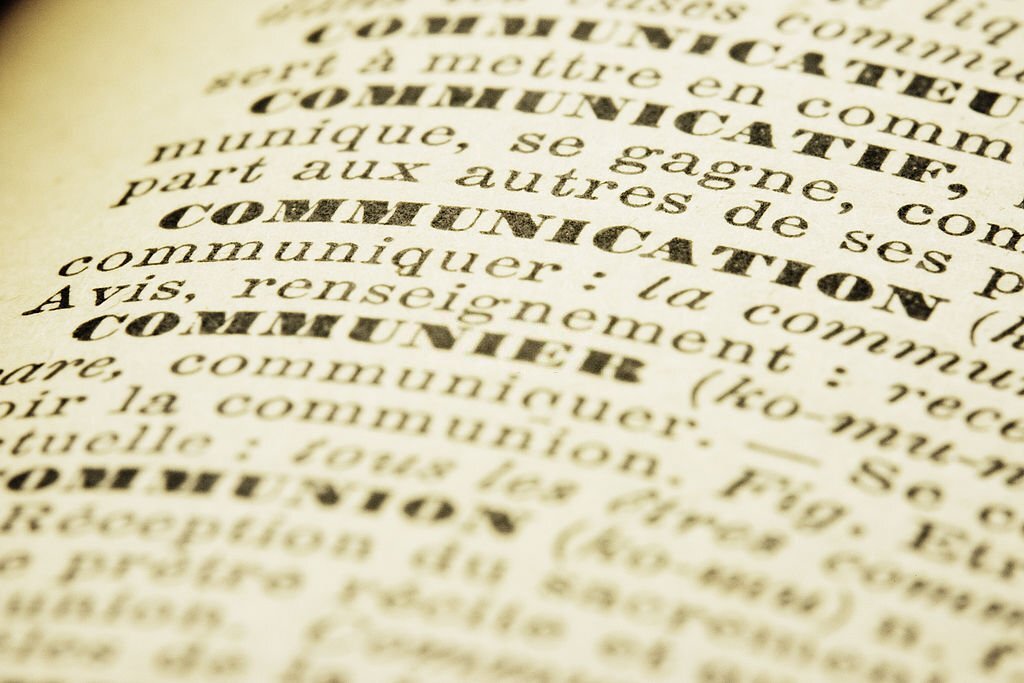 dans les cases commu
COMMUNICATEU
sert à mettre en comm
COMMUNICATIF,
munique, se gagne, com
part aux autres de ses p
COMMUNICATION (k
communiquer : la commun
Avis, renseignement : rece
COMMUNIER (ko-mu-n
are, communiquer. — Se c
oir la communion. Fig. Etr
tuelle : tous les êtres comm
OMMUNION (ko-mu) n. f
Réception du sacrement
e prêtre récite et
union.